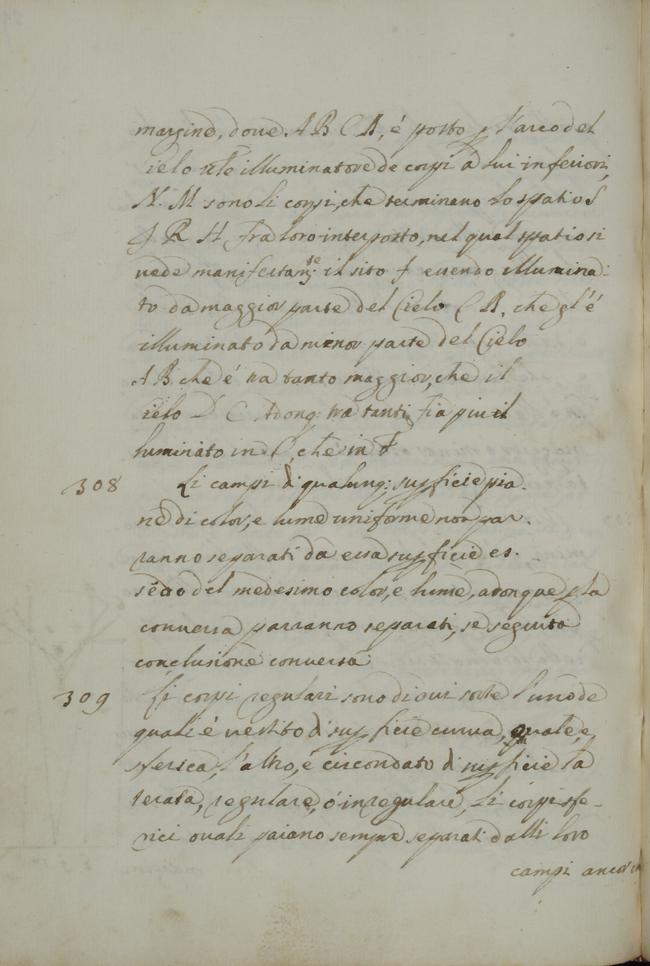 margine, doue A B C R, é posto p l'arco del
Cielo tto illuminatore de corpi à lui inferiori,
N. M sono li corpi, che terminano lo spatio S
R H fra loro interposto, nel qual spatio si
uede manifestamte il sito f essendo illumina:
to da maggior parte del Cielo C R, che gl'é
illuminato da minor parte del Cielo
A B. che é tra tanto maggior, che il
cielo D C Adonq: tra tanti fia piu il
luminato in che in f
308 Li campi di qualunq: supficie pia.
ne di color, e lume uniforme non par.
ranno separati da essa supficie es.
sedo del medesimo color, e lume, adonque p la
conuersa parranno separati, se seguita
conclusione conuersa
309 Li corpi regulari sono di dui sorte l'uno de
quali é uestito di supficie curua, quale, e
sferica, l'altro, é circondato di supficie la
terata, regulare, ó inregulare, Li corpi sfe-
rici ouali paiano sempre separati dalli loro
campi ancor